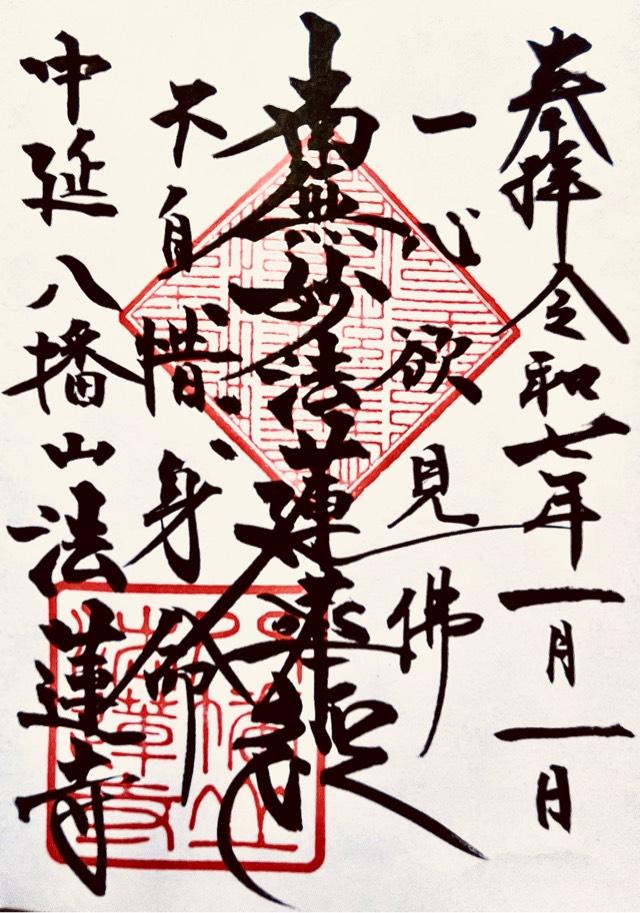 奉拝 令和七年一月一日
一心欲見佛
南無妙法蓮華経
不自惜身命
中延八幡山法蓮寺